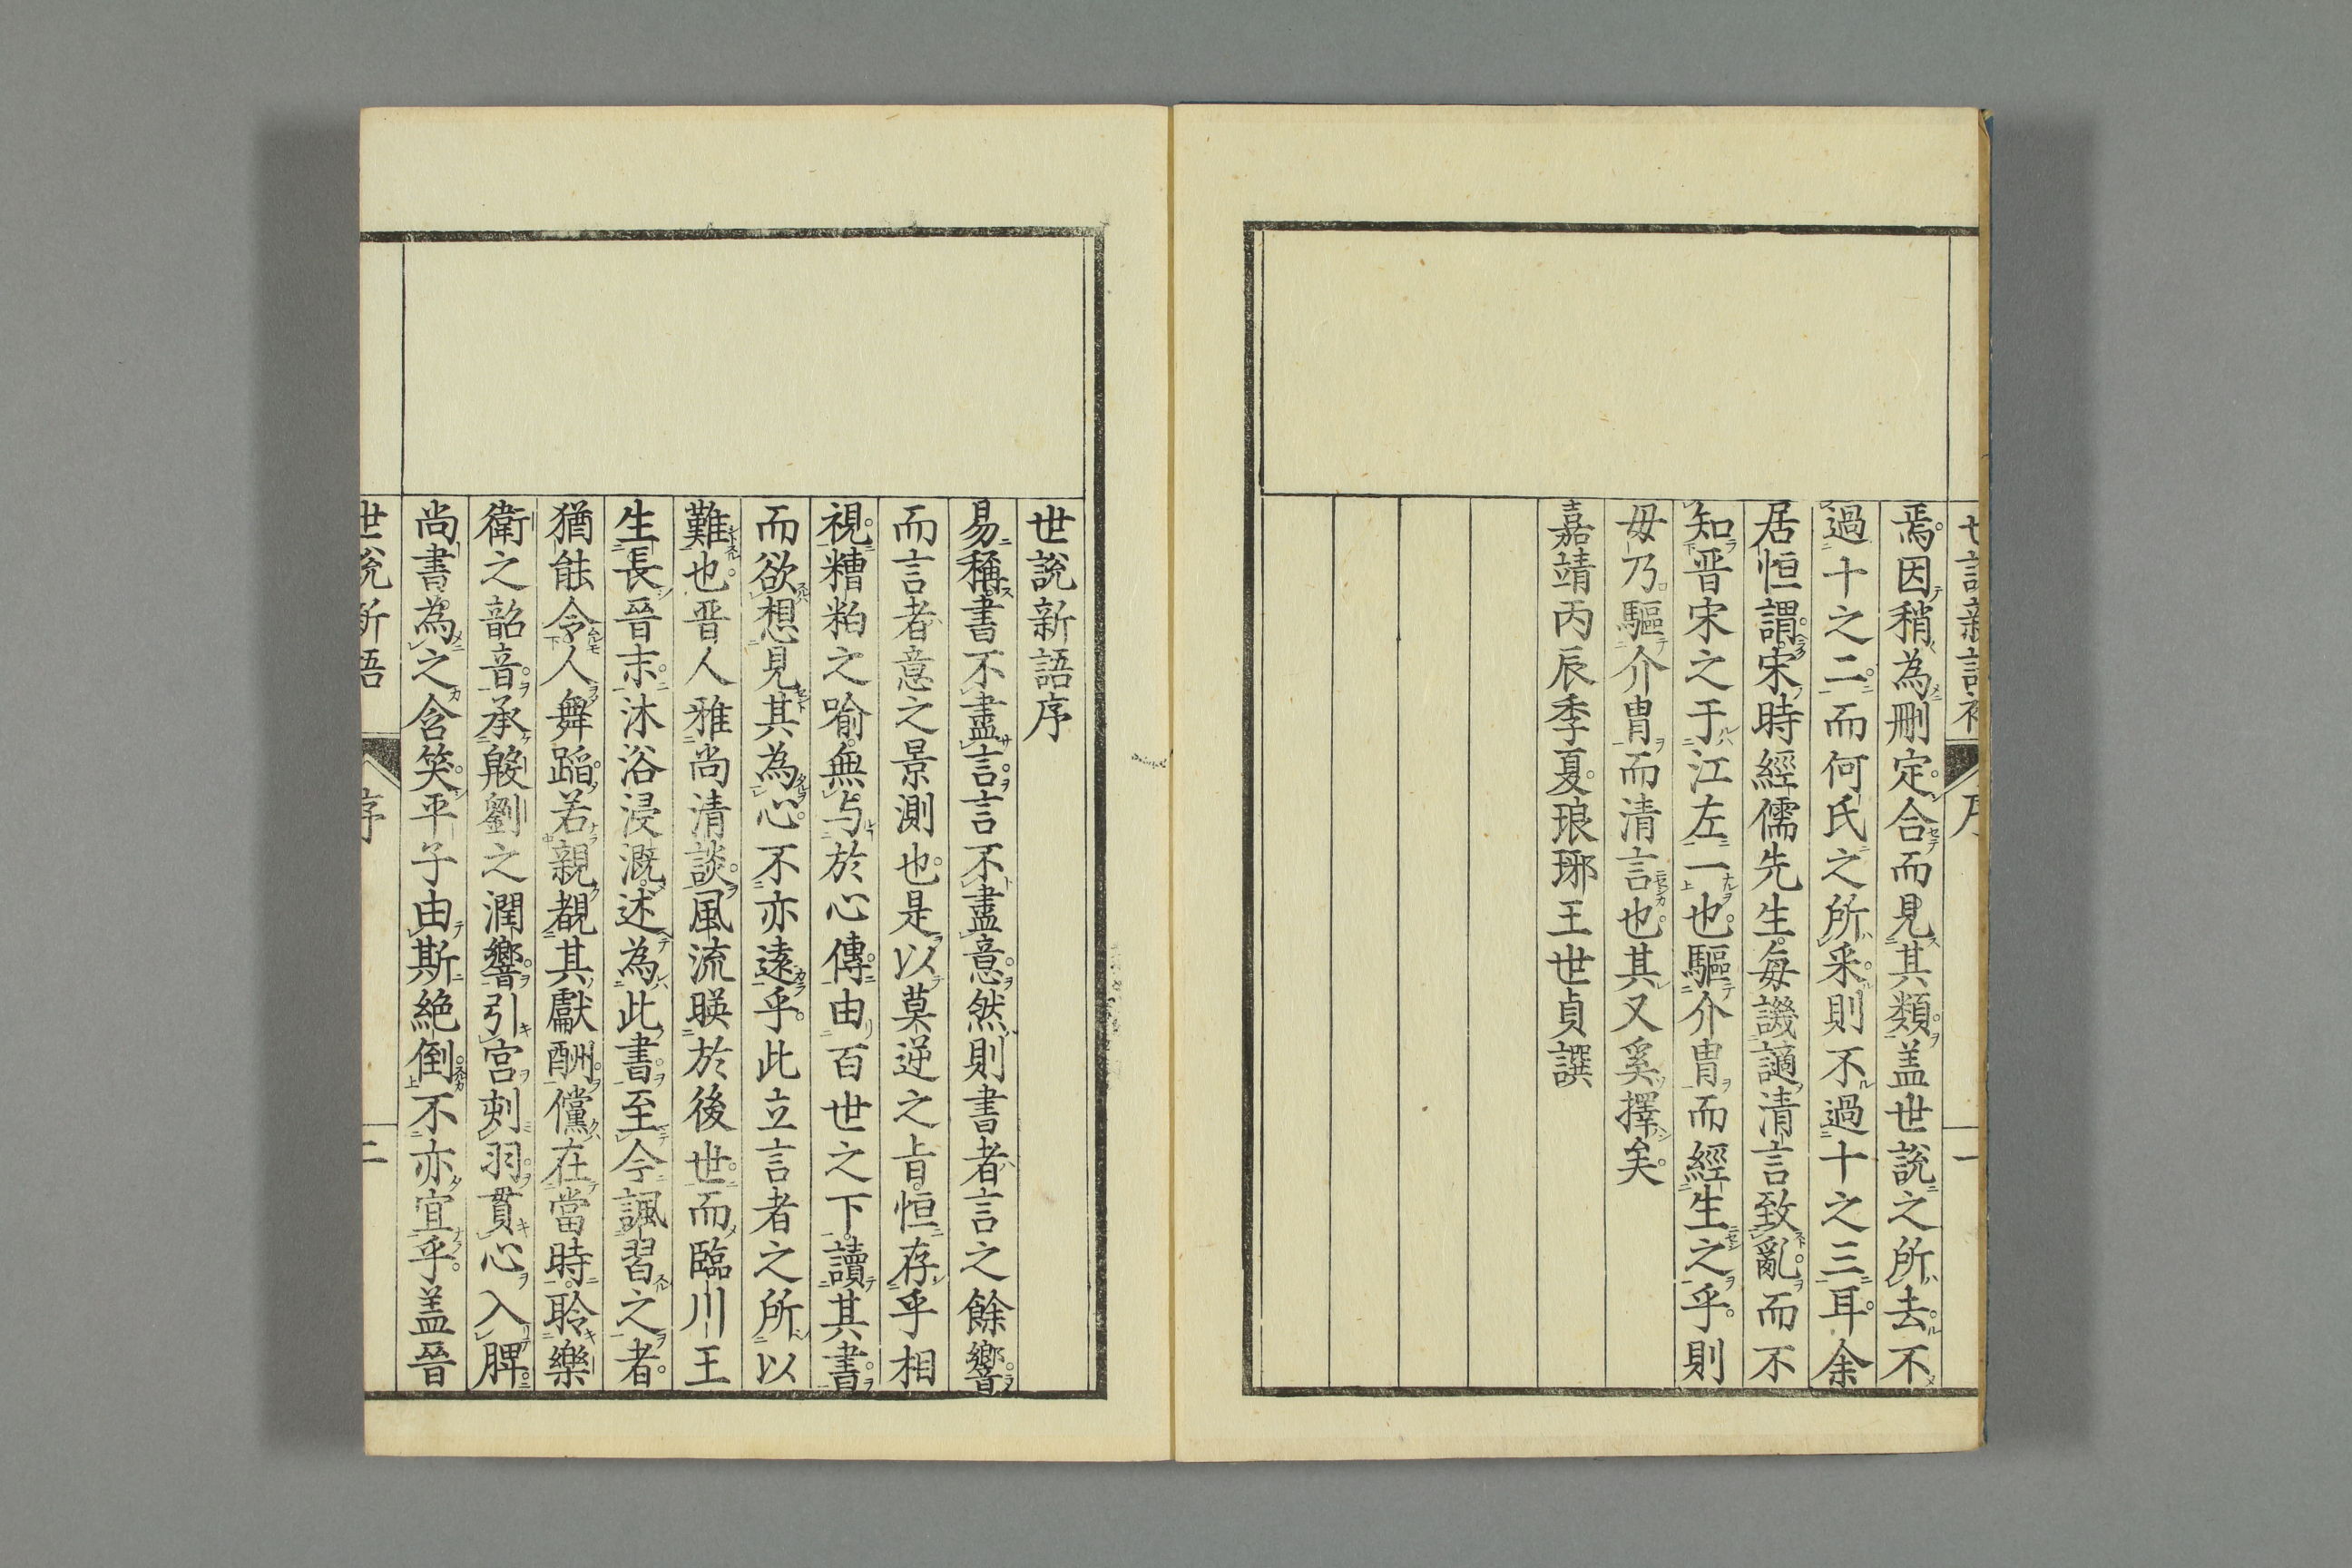 世說新語補 序 一
焉因稍為刪定合而見其類盖世說之所去不
過十之二而何氏之所采則不過十之三耳余
居恒謂宋時經儒先生每譏謫清言致亂而不
知晋宋之于江左一也驅介胄而經生之乎則
毋乃驅介胄而清言也其又奚擇矣
嘉靖丙辰季夏琅琊王世貞譔
世說新語序
易稱書不盡言言不盡意然則書者言之餘響
而言者意之景測也是以莫逆之旨恒存乎相
視糟粕之喻無与於心傳由百世之下讀其書
而欲想見其為心不亦遠乎此立言者之所以
難也晋人雅尚清談風流暎於後世而臨川王
生長晉末沐浴浸溉述為此書至今諷習之者
猶能令人舞蹈若親覩其獻酬儻在當時聆樂
衛之韶音承殷劉之潤響引宮刻羽貫心入脾
尚書為之含笑平子由斯絕倒不亦宜乎盖晉
世說新語 序 二